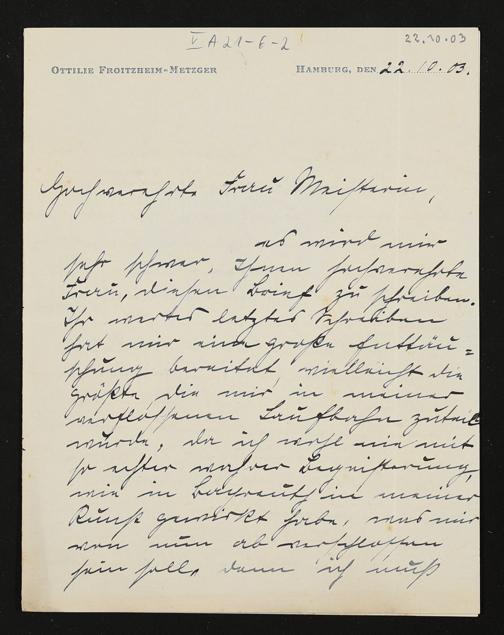 V A 21-6-2
22.10.03
OTTILIE FROITZHEIM-METZGER
HAMBURG, DEN 22.10.03.
Hochverehrte Frau Meisterin,
es wird mir
sehr schwer, Ihnen hochverehrte
Frau, diesen Brief zu schreiben.
Ihr wertes letztes Schreiben
hat mir eine große Enttäu=
schung bereitet, vielleicht die
größte die mir in meiner
verflossenen Laufbahn zuteil
wurde, da ich wohl nie mit
so echter wahrer Begeisterung,
wie in Bayreuth in meiner
Kunst gewirkt habe, was mir
von nun ab verschlossen
sein soll, denn ich muß